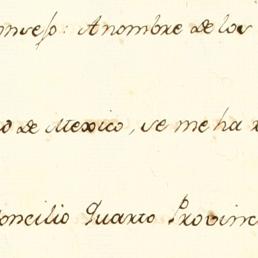 Consejo: A nombre de los
de Mexico, se me ha
Concilio Quarto Provinc